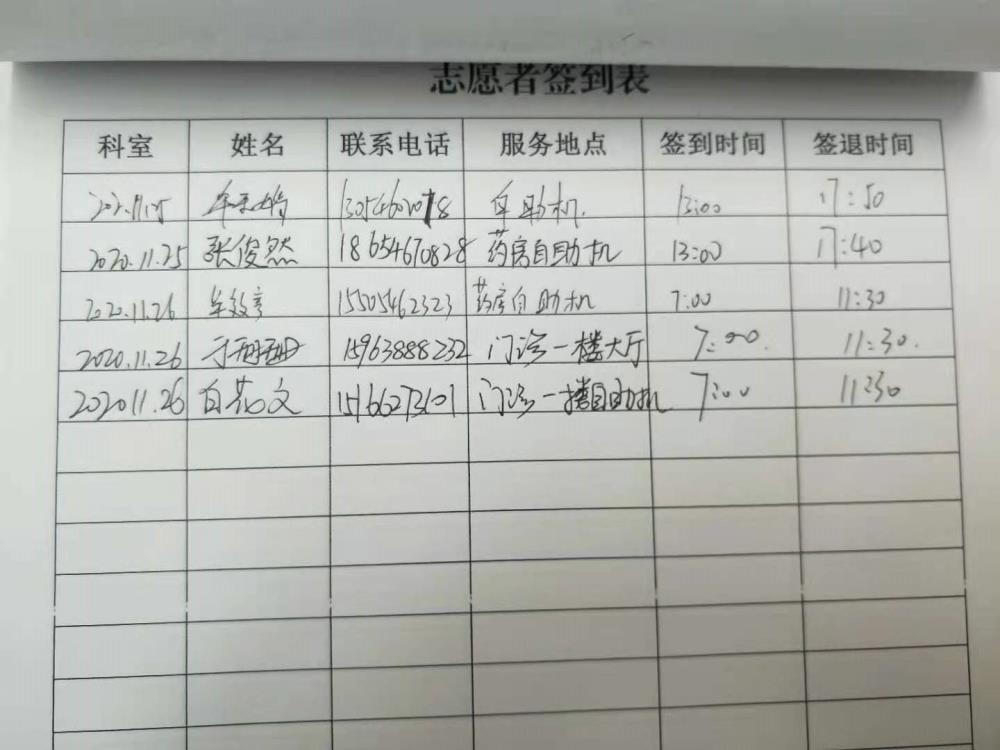 志愿者签到表
科室 姓名 联系电话 服务地点 签到时间 签退时间
自助机. 13:00 17:50
2020.11.25 张俊然 18654670828 药房自助机 13:00 17:40
2020.11.26 15505462323 药房自助机 7:00 11:30
2020.11.26 于珊珊 15963888232 门诊一楼大厅 7:00. 11:30.
202011.26 白花文 15166273101 门诊一楼自助机 7:00 11:30